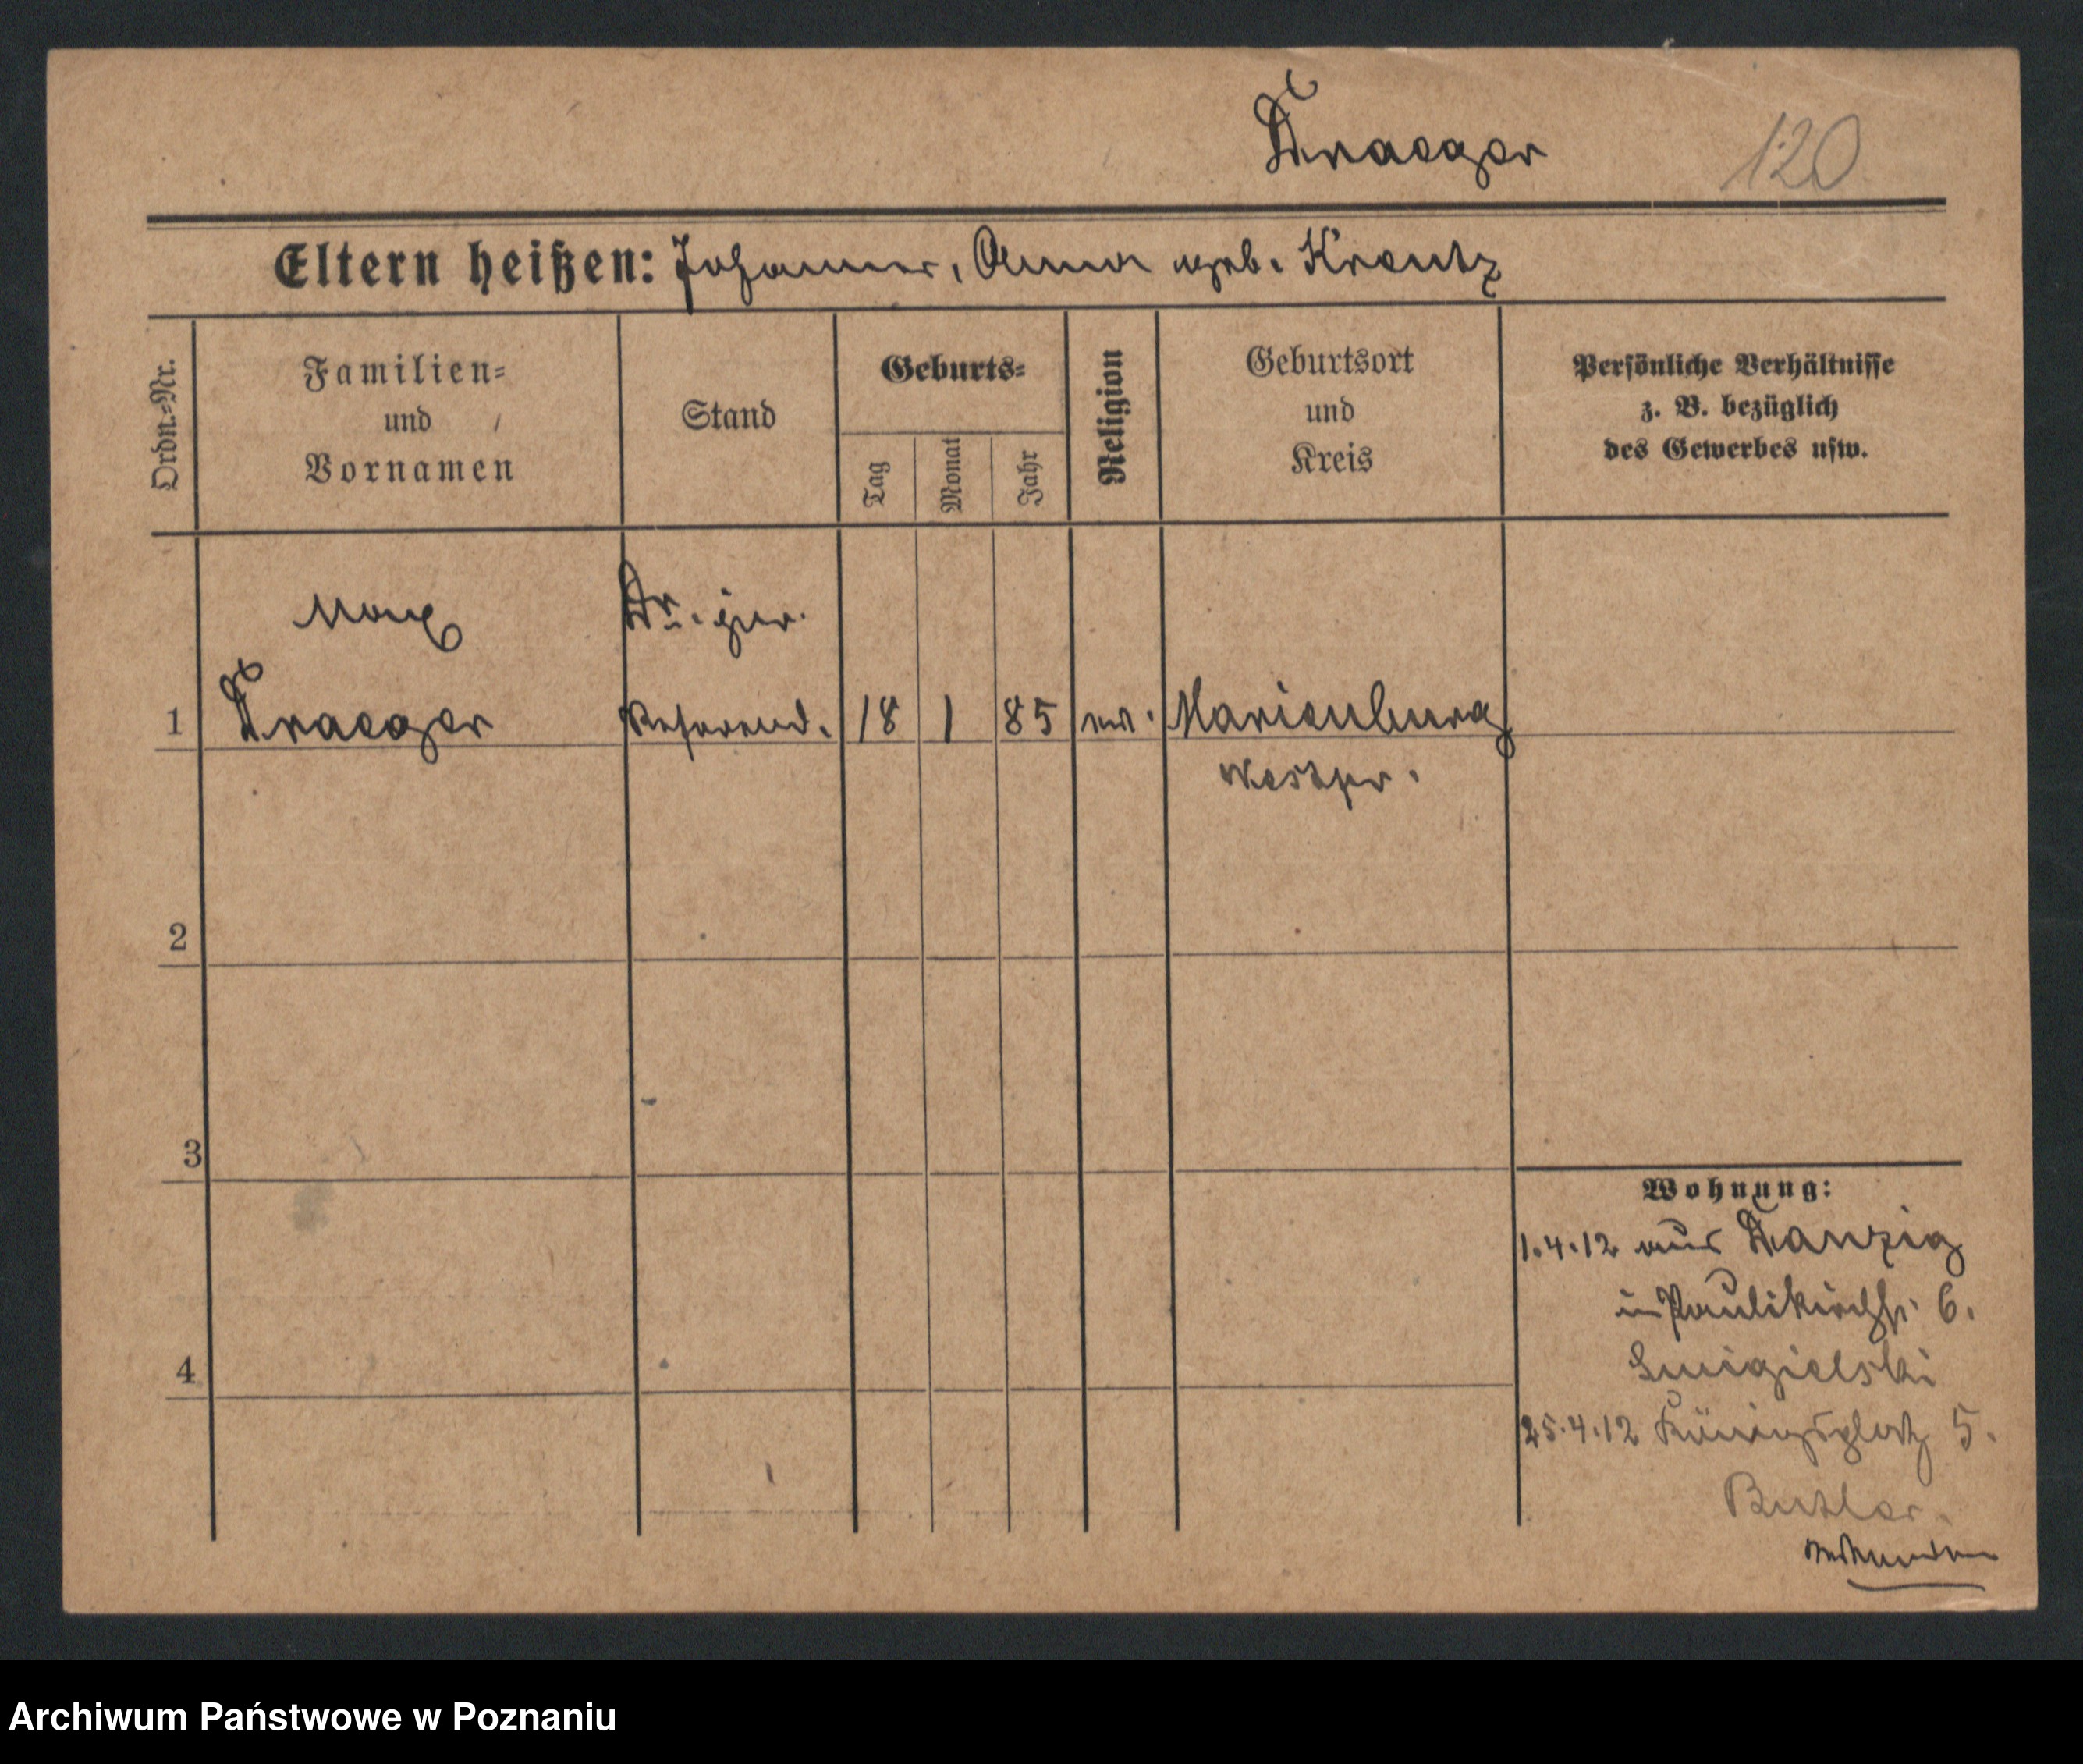 Draeger 120
Eltern heißen: Johannes, Anna geb. Krentz
Ordn.=Nr.
Familien=
und
Vornamen
Stand
Geburts=
Tag
Monat
Jahr
Religion
Geburtsort
und
Kreis
Persönliche Verhältnisse
z. B. bezüglich
des Gewerbes usw.
Max Dr. jur.
1 Draeger Referend. 18 1 85 ev. Marienburg
Westpr.
2
3
4
Wohnung:
1.4.12 aus Danzig
in Paulikirchstr. 6.
Smigielski
25.4.12 Königsplatz 5.
Butler.
Archiwum Państwowe w Poznaniu